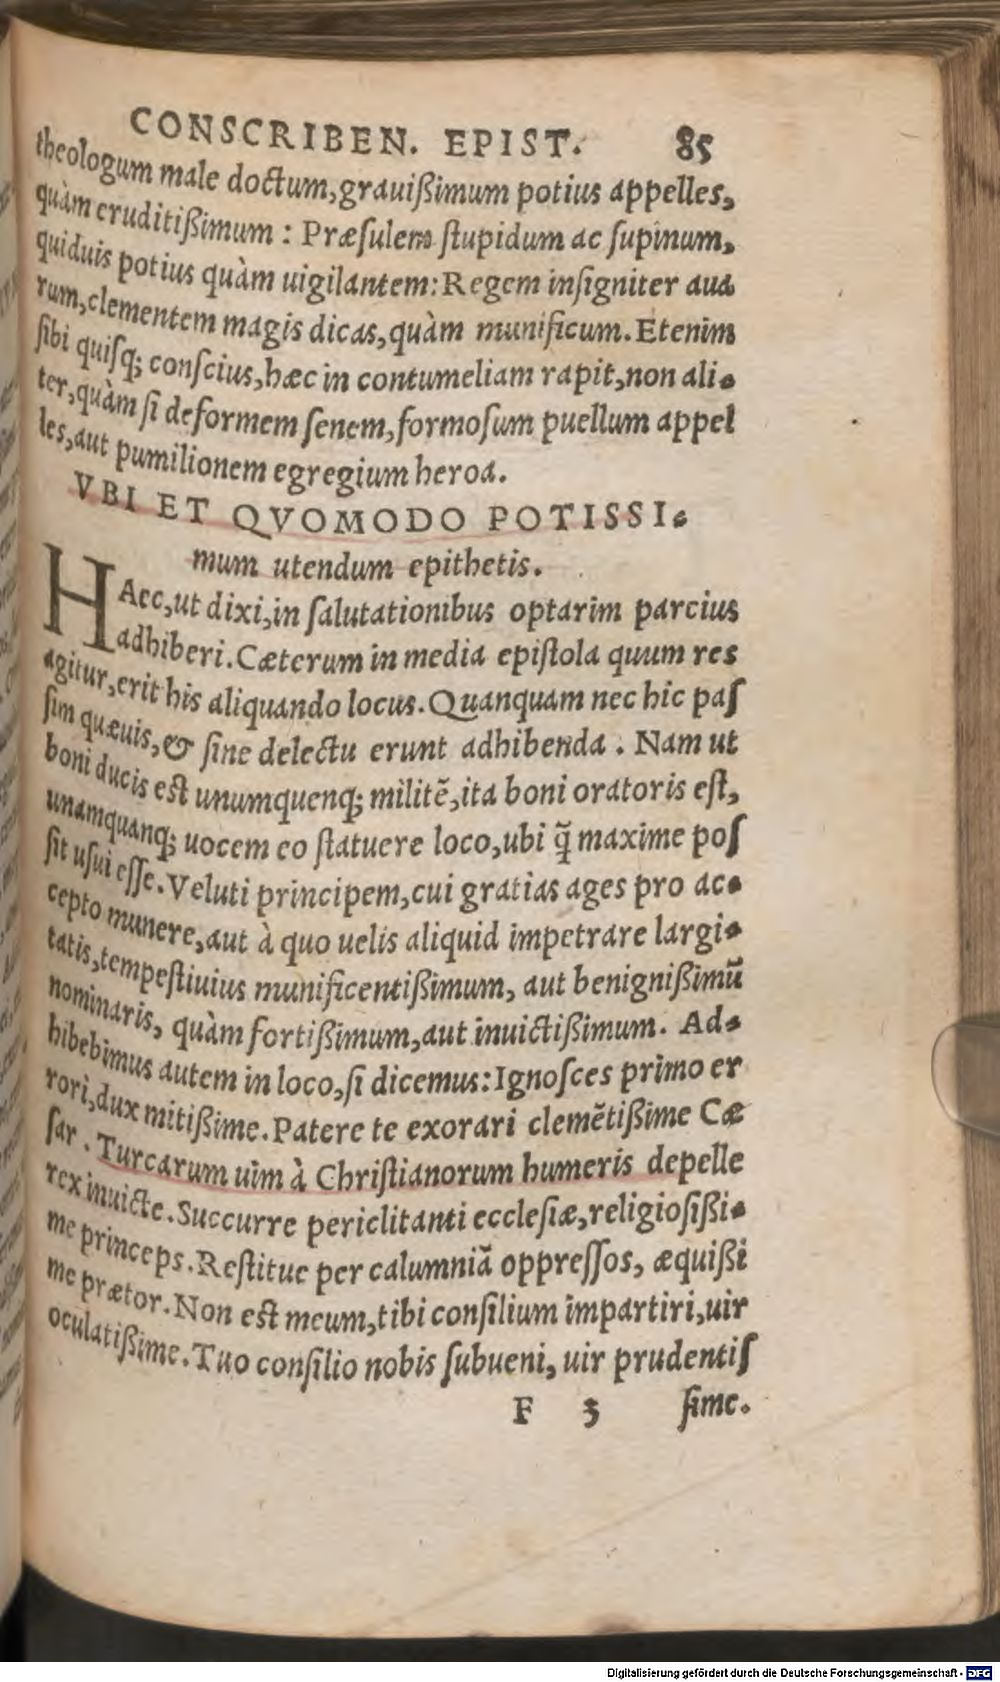 CONSCRIBEN. EPIST. 85
theologum male doctum, grauißimum potius appelles,
quàm eruditißimum : Præſulem ſtupidum ac ſupinum,
quiduis potius quàm uigilantem: Regem inſigniter aua
rum, clementem magis dicas, quàm munificum. Etenim
ſibi quiſq; conſcius, hæc in contumeliam rapit, non ali-
ter, quàm ſi deformem ſenem, formoſum puellum appel
les, aut pumilionem egregium heroa.
VBI ET QVOMODO POTISSI-
mum utendum epithetis.
HAec, ut dixi, in ſalutationibus optarim parcius
adhiberi. Cæterum in media epiſtola quum res
agitur, erit his aliquando locus. Quanquam nec hic paſ
ſim quæuis, & ſine delectu erunt adhibenda . Nam ut
boni ducis est unumquenq; militẽ, ita boni oratoris eſt,
unamquanq; uocem eo ſtatuere loco, ubi q̃ maxime poſ
ſit uſui eſſe. Veluti principem, cui gratias ages pro ac-
cepto munere, aut à quo uelis aliquid impetrare largi-
tatis, tempeſtiuius munificentißimum, aut benignißimũ
nominaris, quàm fortißimum, aut inuictißimum. Ad-
hibebimus autem in loco, ſi dicemus: Ignoſces primo er
rori, dux mitißime. Patere te exorari clemẽtißime Cæ
ſar . Turcarum uim à Chriſtianorum humeris depelle
rex inuicte. Succurre periclitanti eccleſiæ, religioſißi-
me princeps. Reſtitue per calumniã oppreſſos, æquißi
me prætor. Non est meum, tibi conſilium impartiri, uir
oculatißime. Tuo conſilio nobis ſubueni, uir prudentiſ
F 3 ſime.
Digitalisierung gefördert durch die Deutsche Forschungsgemeinschaft - DFG